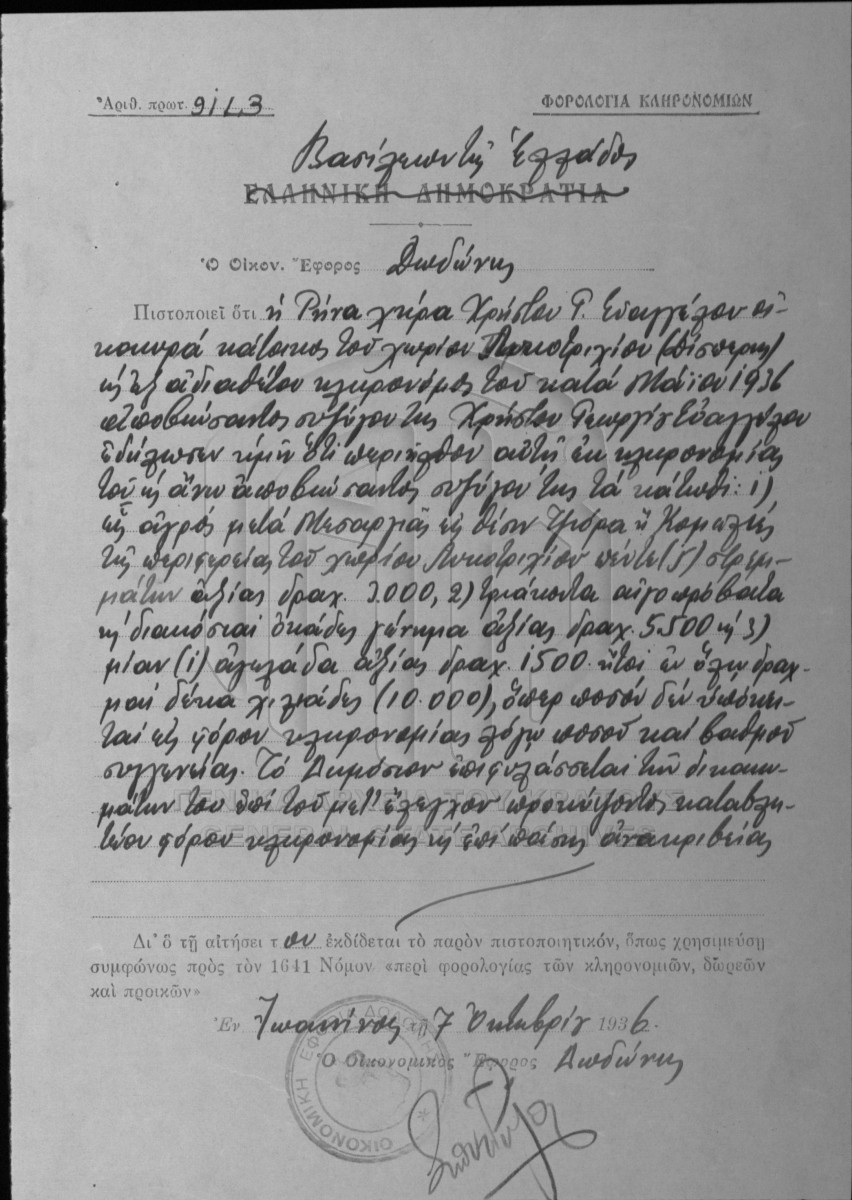 Ἀριθ. πρωτ. 91/L3
ΦΟΡΟΛΟΓΙΑ ΚΛΗΡΟΝΟΜΙΩΝ
Βασίλειον τῆς Ἑλλάδος
ΕΛΛΗΝΙΚΗ ΔΗΜΟΚΡΑΤΙΑ
Ὁ Οἰκον. Ἔφορος Δωδώνης
Πιστοποιεῖ ὅτι ἡ Ρήνα χήρα Χρήστου Γ. Εὐαγγέλου οἰ-
κοκυρά κάτοικος τοῦ χωρίου
ὡς ἐξ ἀδιαθέτου κληρονόμος τοῦ κατά Μάϊον 1936
ἀποβιώσαντος συζύγου της Χρήστου Γεωργίου Εὐαγγέλου
ἐδήλωσεν ἡμῖν ὅτι περιῆλθον αὐτῇ ἐκ κληρονομίας
τοῦ ὡς ἄνω ἀποβιώσαντος συζύγου της τά κάτωθι: 1)
εἷς ἀγρός μετά εἰς θέσιν ἤ
τῆς περιφερείας τοῦ χωρίου πέντε (5) στρεμ-
μάτων ἀξίας δραχ. 3.000, 2) τριάκοντα αἰγοπρόβατα
καί διακόσιαι ὀκάδες γέννημα ἀξίας δραχ. 5.500 καί 3)
μίαν (1) ἀγελάδα ἀξίας δραχ. 1500 ἤτοι ἐν ὅλῳ δραχ-
μαί δέκα χιλιάδες (10.000), ὅπερ ποσόν δέν ὑπόκει-
ται εἰς φόρον κληρονομίας λόγῳ ποσοῦ καί βαθμοῦ
συγγενείας. Τό Δημόσιον ἐπιφυλάσσεται τῶν δικαιω-
μάτων του ἐπί τοῦ μετ' ἔλεγχον προκύψοντος καταβλη-
τέου φόρου κληρονομίας καί ἐπί πάσης ἀνακριβείας
ΓΕΝΙΚΑ ΑΡΧΕΙΑ ΤΟΥ ΚΡΑΤΟΥΣ
GENERAL STATE ARCHIVES
Δι' ὃ τῇ αἰτήσει του ἐκδίδεται τὸ παρὸν πιστοποιητικόν, ὅπως χρησιμεύσῃ
συμφώνως πρὸς τὸν 1641 Νόμον «περὶ φορολογίας τῶν κληρονομιῶν, δωρεῶν
καὶ προικῶν»
Ἐν Ἰωαννίνοις τῇ 7 Ὀκτωβρίου 1936.
Ὁ Οἰκονομικὸς Ἔφορος Δωδώνης
ΟΙΚΟΝΟΜΙΚΗ ΕΦΟΡΙΑ ΔΩΔΩΝΗΣ